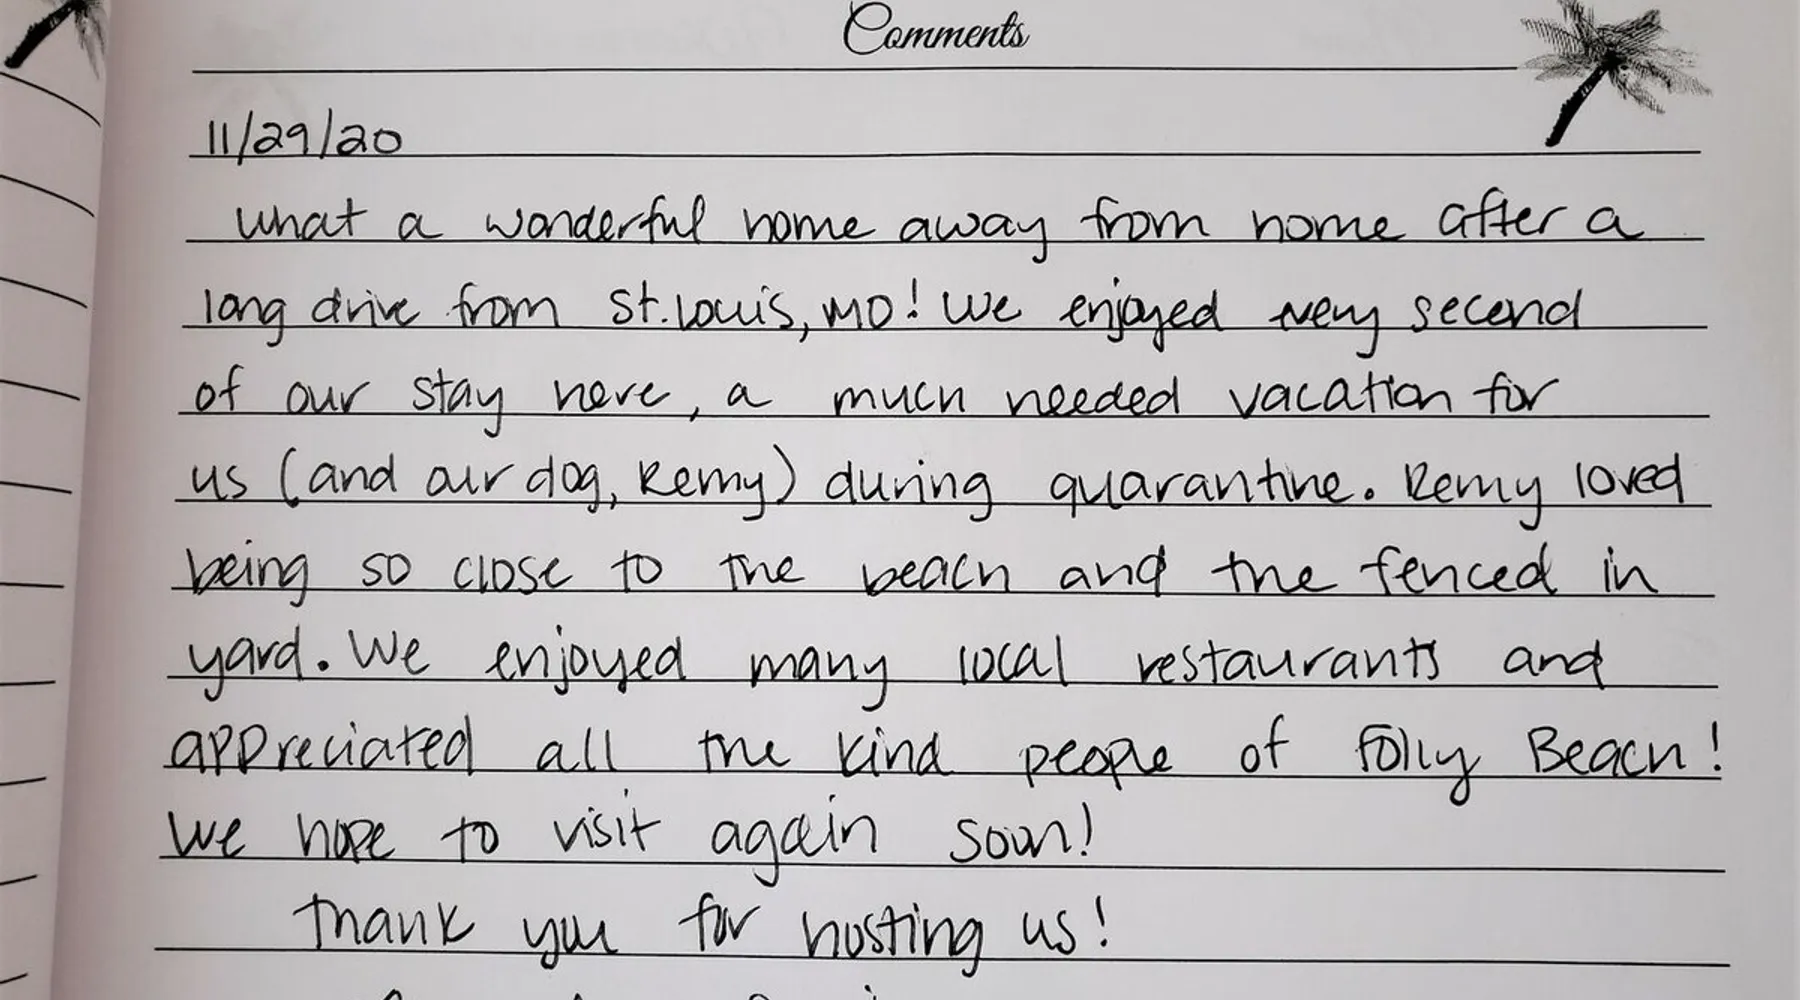 Comments
11/29/20
What a wonderful home away from home after a
long drive from St. Louis, MO! We enjoyed every second
of our stay here, a much needed vacation for
us (and our dog, Remy) during quarantine. Remy loved
being so close to the beach and the fenced in
yard. We enjoyed many local restaurants and
appreciated all the kind people of Folly Beach!
We hope to visit again soon!
Thank you for hosting us!